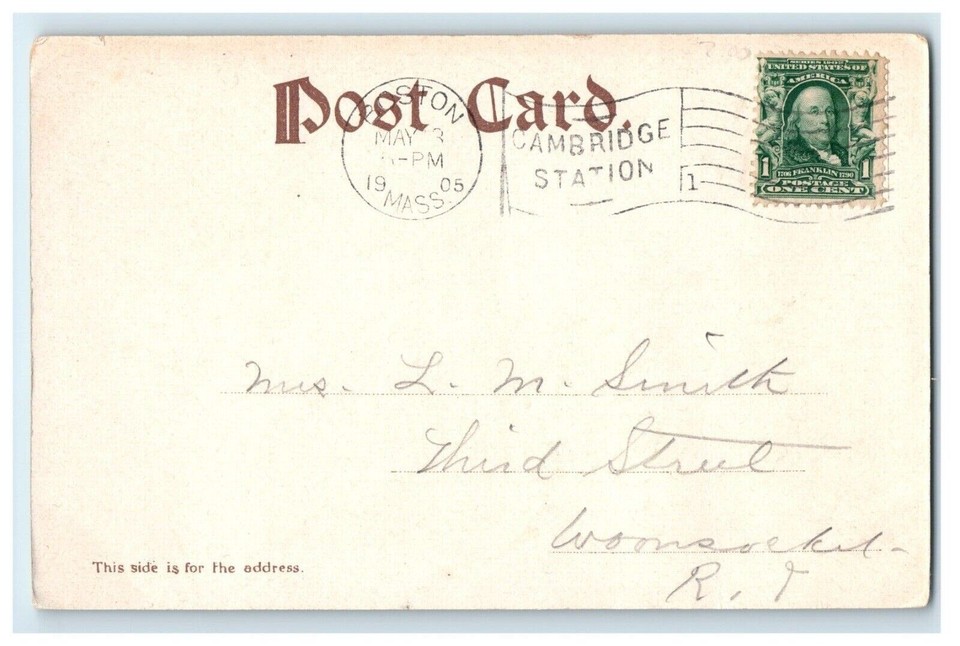 Post Card.
BOSTON
MAY 3
-PM
19 05
MASS.
CAMBRIDGE
STATION
1
SERIES 1902
UNITED STATES OF
AMERICA
1 1
1706 FRANKLIN 1790
POSTAGE
ONE CENT
Mrs. L. M. Smith
Third Street
Woonsocket-
R. I
This side is for the address.